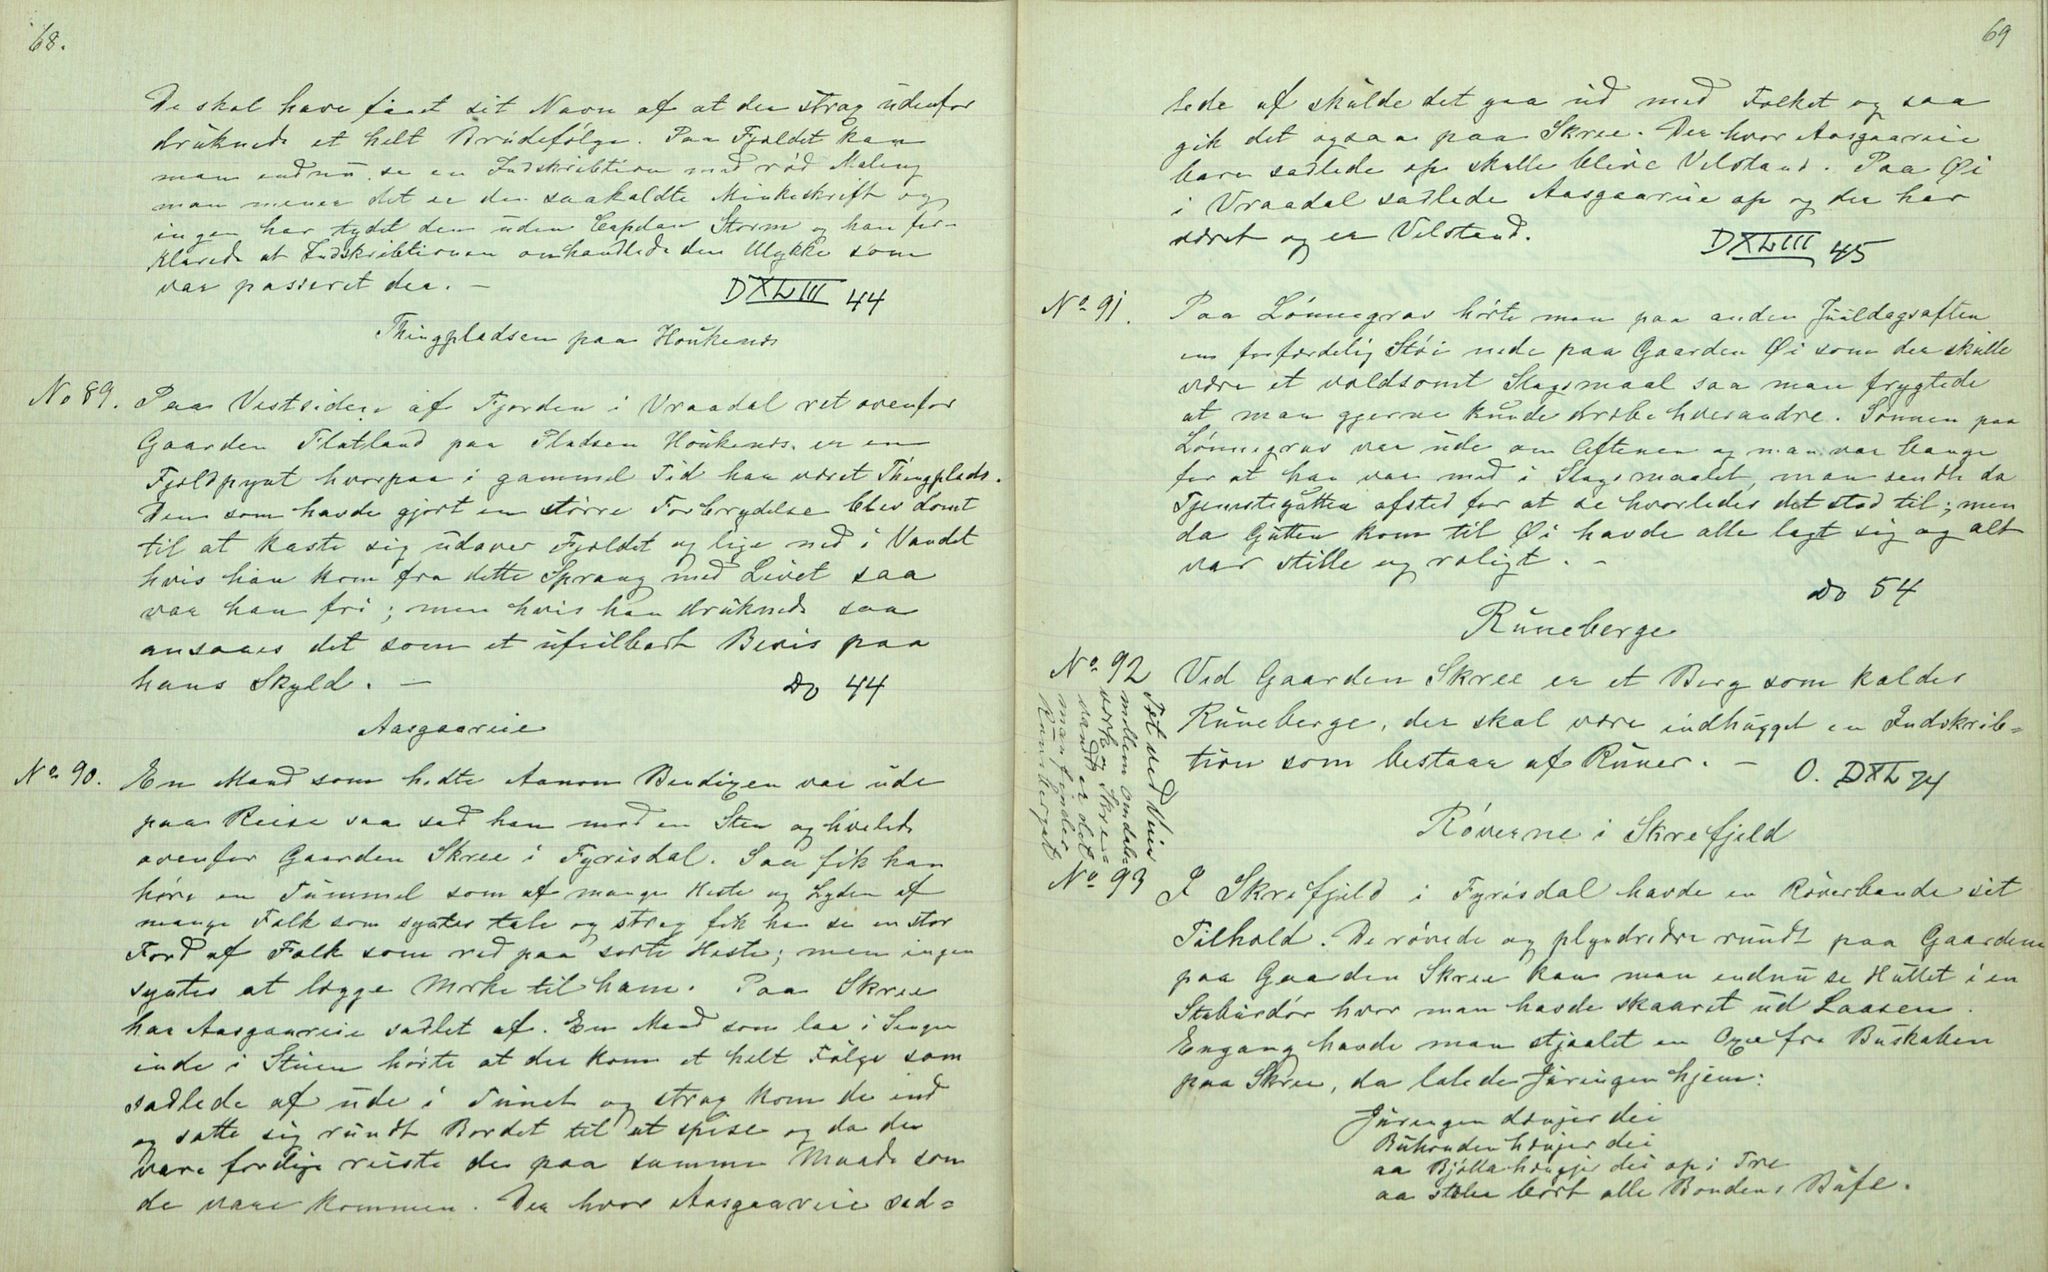 68.
De skal have faaet sit Navn af at der strax udenfor
druknede et helt Brudefölge. Paa Fjeldet kan
man endnu se en Indskribtion med röd Maling
man mener det er den saakaldte Munkeskrift og
ingen har tydet den uden Capdan Storm og han for-
klarede at Indskribtionen omhandlede den Ulykke som
var passeret der. –
DXLIII 44
Thingpladsen paa Houkenæs
No 89. Paa Vestsiden af Fjorden i Vraadal ret ovenfor
Gaarden Flatland paa Pladsen Houkenæs er en
Fjeldpynt hvorpaa i gammel Tid har været Thingplads.
Den som havde gjort en större Forbrydelse blev dömt
til at kaste sig udover Fjeldet og lige ned i Vandet
hvis han kom fra dette Sprang med Livet saa
var han fri; men hvis han druknede saa
ansaaes det som et ufeilbart Bevis paa
hans Skyld. –
Do 44
Aasgaareie
No 90. En Mand som hedte Aanon Bendixen var ude
paa Reise saa sad han med en Sten og hvilede
ovenfor Gaarden Skree i Fyrisdal. Saa fik han
höre en Tummel som af mange Heste og Lyden af
mange Folk som syntes tale og strax fik han se en stor
Ferd af Folk som red paa sorte Heste; men ingen
syntes at lægge Merke til ham. Paa Skree
har Aasgaareie sadlet af. En Mand som laa i Sengen
inde i Stuen hörte at der kom et helt Fölge som
sadlede af ude i Tunet og strax kom de ind
og satte sig rundt Bordet til at spise og da de
vare ferdige reiste de paa samme Maade som
de vare kommen. Der hvor Aasgaareie sad=
69
lede af skulde det gaa ud med Folket og saa
gik det ogsaa paa Skree. Der hvor Aasgaareie
bare sadlede op skulle blive Velstand. Paa Øi
i Vraadal sadlede Aasgaareie op og der har
været og er Velstand.
DXLIII 45
No 91. Paa Lönnegrav hörte man paa anden Juuldagsaften
en forfærdelig Stöi nede paa Gaarden Øi som der skulle
være et voldsomt Slagsmaal saa man frygtede
at man gjerne kunde dræbe hverandre. Sönnen paa
Lönnegrav var ude om Aftenen og man var bange
for at han var med i Slagsmaalet, man sendte da
Tjenestegutten afsted for at se hvorledes det stod til; men
da Gutten kom til Øi havde alle lagt sig og alt
var stille og roligt. –
Do 54
Runeberge
No 92 Ved Gaarden Skree er et Berg som kaldes
Runeberge, der skal være indhugget en Indskrib=
tion som bestaar af Runer. –
O. DXL 74
Tæt ved Veien
mellem Omdals=
verk og Skree=
vandt er det
man finder
Runeberget
Röverne i Skrefjeld
No 93 I Skrefjeld i Fyrisdal havde en Röverbande sit
Tilhold. De rövede og plyndredre rundt paa Gaardene
paa Gaarden Skree kan man endnu se Hullet i en
Stabursdör hvor man havde skaaret ud Laasen.
Engang havde man stjaalet en Oxe fra Buskaben
paa Skree, da lalede Juringen hjem:
Juringen dængjer dei
Buhonden hængjer dei
aa Bjölla hængjer dei op i Tre
aa steler bort alle Bondens Bufe.